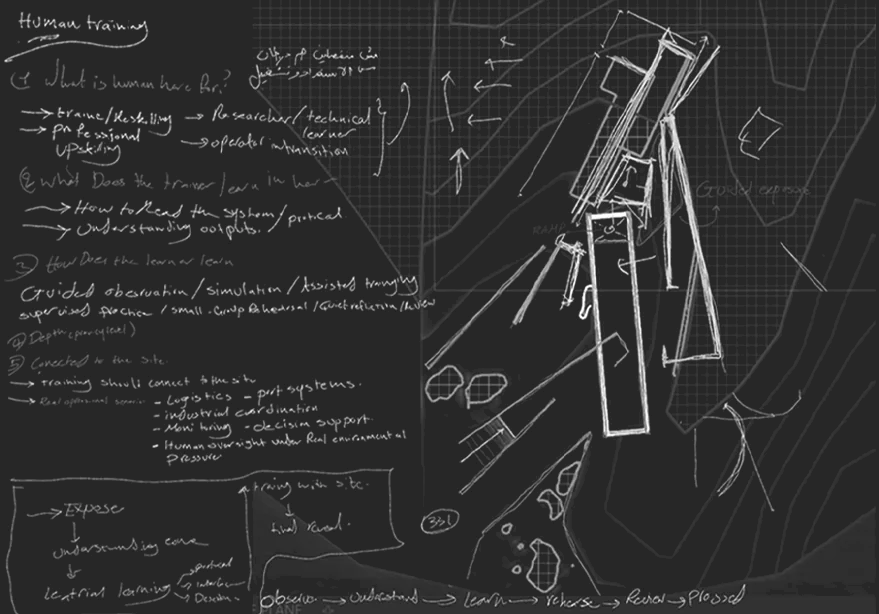 Human training
1 What is human here for?
→ traine/Reskilling → Researcher/technical
learner
→ professional → operator in transition
upskilling
2 what Does the trainer/learn in her
→ How to Read the system/protical
→ Understanding outputs.
3 How Does the learner learn
Guided obsrvation/simulation/Assisted
supervised practice/small-Group Rehearsal/Quiet reflection/Review
4 Depth
5 Conected to the site.
→ training should connect to the site
→ Real operational
- Logistics - port systems.
- industrial coordination
- Monitoring - decision support
- Human oversight under Real
pressure
→ Expose
understanding
learning
training with site.
final reveal.
Guided
RAMP
331
observe → understand → learn → reherse → →